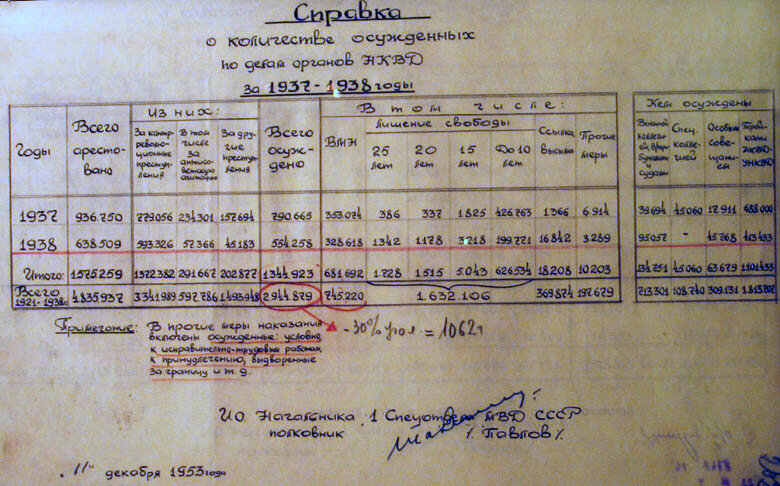 Справка
о количестве осужденных
по делам органов НКВД
за 1937-1938 годы
Годы Всего арестовано Из них: За контрреволюционные преступления В том числе за антисоветскую агитацию За другие преступления Всего осуждено В том числе: ВМН Лишение свободы 25 лет 20 лет 15 лет До 10 лет Ссылка высылка Прочие меры Кем осуждены Спец. коллегией Особым совещанием Тройками НКВД-УНКВД
1937 936.750 779056 234301 157694 790.665 353.074 386 337 1.825 426.763 1.366 6.914 39.694 45.060 17.911 688000
1938 638.509 593.326 57.366 45.183 554.258 328.618 1342 1.178 3.218 199.771 16.842 3.289 95057 - 45.768 413433
Итого: 1575259 1372382 291.667 202877 1344923 681.692 1.728 1.515 5.043 626.534 18208 10.203 134.751 45.060 63.679 1101433
Всего 1921-1938г. 4.835.937 3341989 1493948 2944.879 745220 1.632.106 369.874 197.679 713301 108.740 309.131
Примечание: В прочие меры наказания
включены осужденные: условно,
к исправительно-трудовым работам,
к принудлечению, выдворенные
за границу и т. д.
-30% угол. = 1062т
И.О. Начальника 1 Спецотдела МВД СССР
полковник /Павлов/
„11" декабря 1953 года